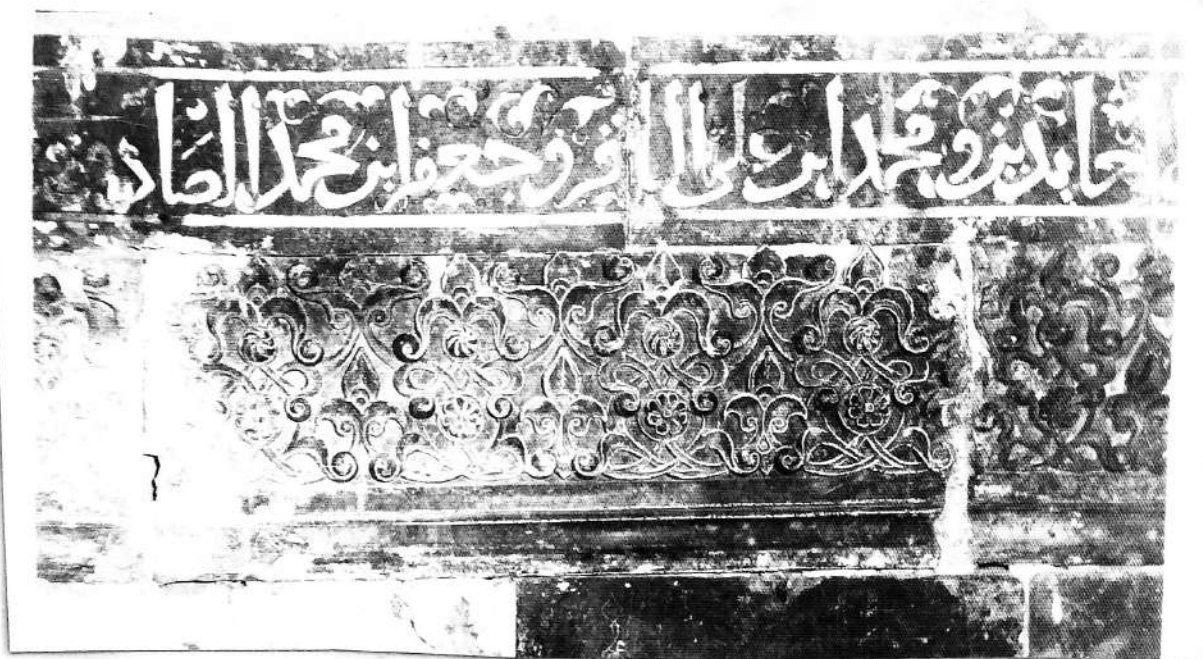 عابدين و محمد ابن على الباقر و جعفر ابن محمد الصاد